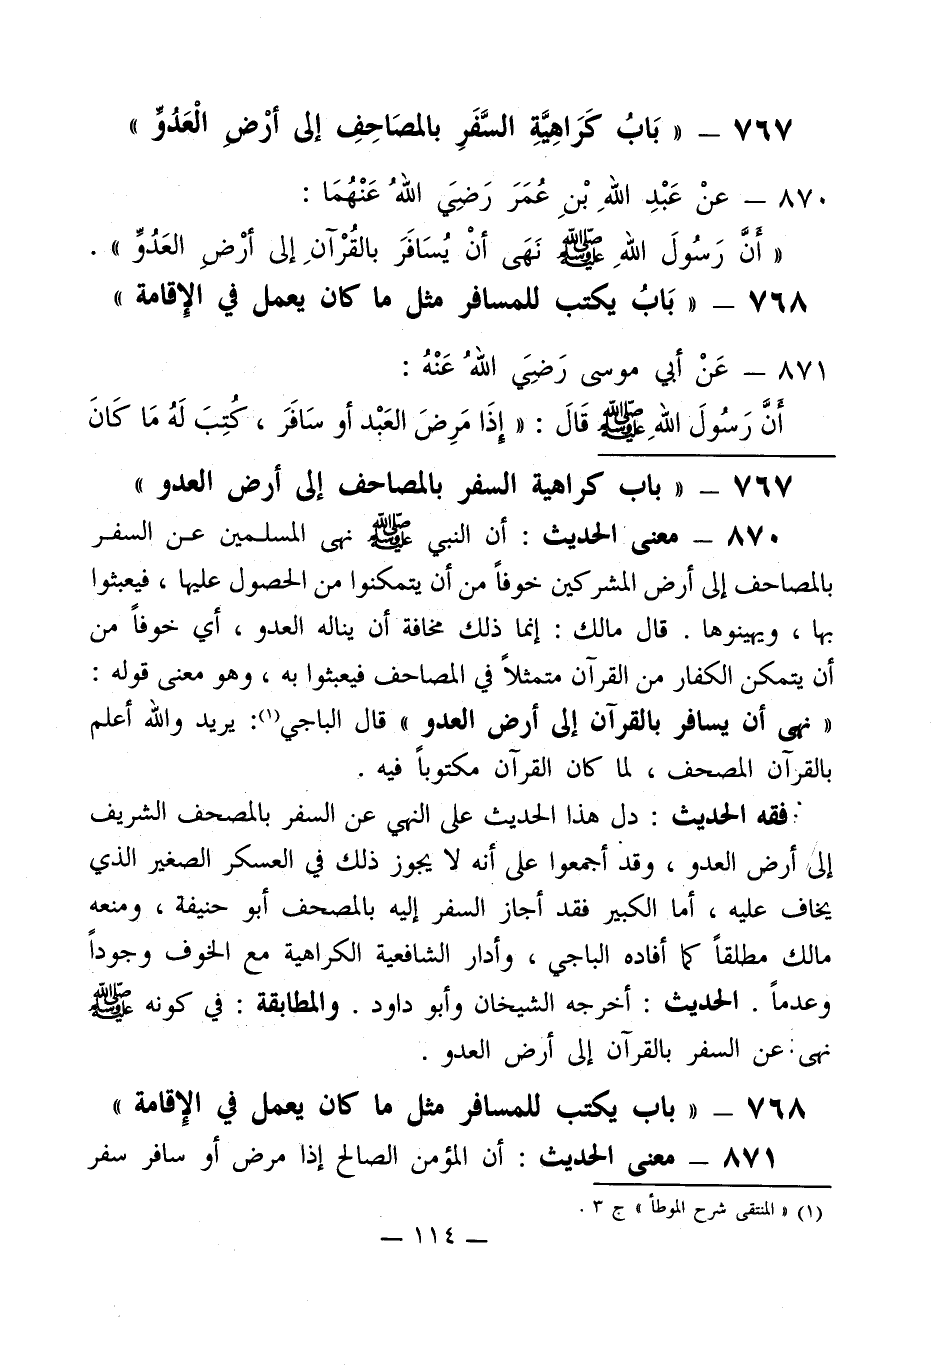 ٧٦٧ – « بَابُ كَرَاهِيَّةِ السَّفَرِ بالمصَاحِفِ إلى أرْضِ الْعَدُوِّ »
٨٧٠ – عنْ عَبْدِ اللهِ بْنِ عُمَرَ رَضِيَ اللهُ عَنْهُمَا :
« أَنَّ رَسُولَ اللهِ ﷺ نَهَى أنْ يُسَافَرَ بالقُرْآنِ إلى أرْضِ العَدُوِّ » .
٧٦٨ – « بَابُ يكتب للمسافر مثل ما كان يعمل في الإقامة »
٨٧١ – عَنْ أبي موسى رَضِيَ اللهُ عَنْهُ :
أَنَّ رَسُولَ اللهِ ﷺ قَالَ : « إِذَا مَرِضَ العَبْد أو سَافَرَ ، كُتِبَ لَهُ مَا كَانَ
٧٦٧ – « باب كراهية السفر بالمصاحف إلى أرض العدو »
٨٧٠ – معنى الحديث : أن النبي ﷺ نهى المسلمين عن السفر
بالمصاحف إلى أرض المشركين خوفاً من أن يتمكنوا من الحصول عليها ، فيعبثوا
بها ، ويهينوها . قال مالك : إنما ذلك مخافة أن يناله العدو ، أي خوفاً من
أن يتمكن الكفار من القرآن متمثلاً في المصاحف فيعبثوا به ، وهو معنى قوله :
« نهى أن يسافر بالقرآن إلى أرض العدو » قال الباجي(١): يريد والله أعلم
بالقرآن المصحف ، لما كان القرآن مكتوباً فيه .
فقه الحديث : دل هذا الحديث على النهي عن السفر بالمصحف الشريف
إلى أرض العدو ، وقد أجمعوا على أنه لا يجوز ذلك في العسكر الصغير الذي
يخاف عليه ، أما الكبير فقد أجاز السفر إليه بالمصحف أبو حنيفة ، ومنعه
مالك مطلقاً كما أفاده الباجي ، وأدار الشافعية الكراهية مع الخوف وجوداً
وعدماً . الحديث : أخرجه الشيخان وأبو داود . والمطابقة : في كونه ﷺ
نهى عن السفر بالقرآن إلى أرض العدو .
٧٦٨ – « باب يكتب للمسافر مثل ما كان يعمل في الإقامة »
٨٧١ – معنى الحديث : أن المؤمن الصالح إذا مرض أو سافر سفر
(١) « المنتقى شرح الموطأ » ج ٣ .
– ١١٤ –